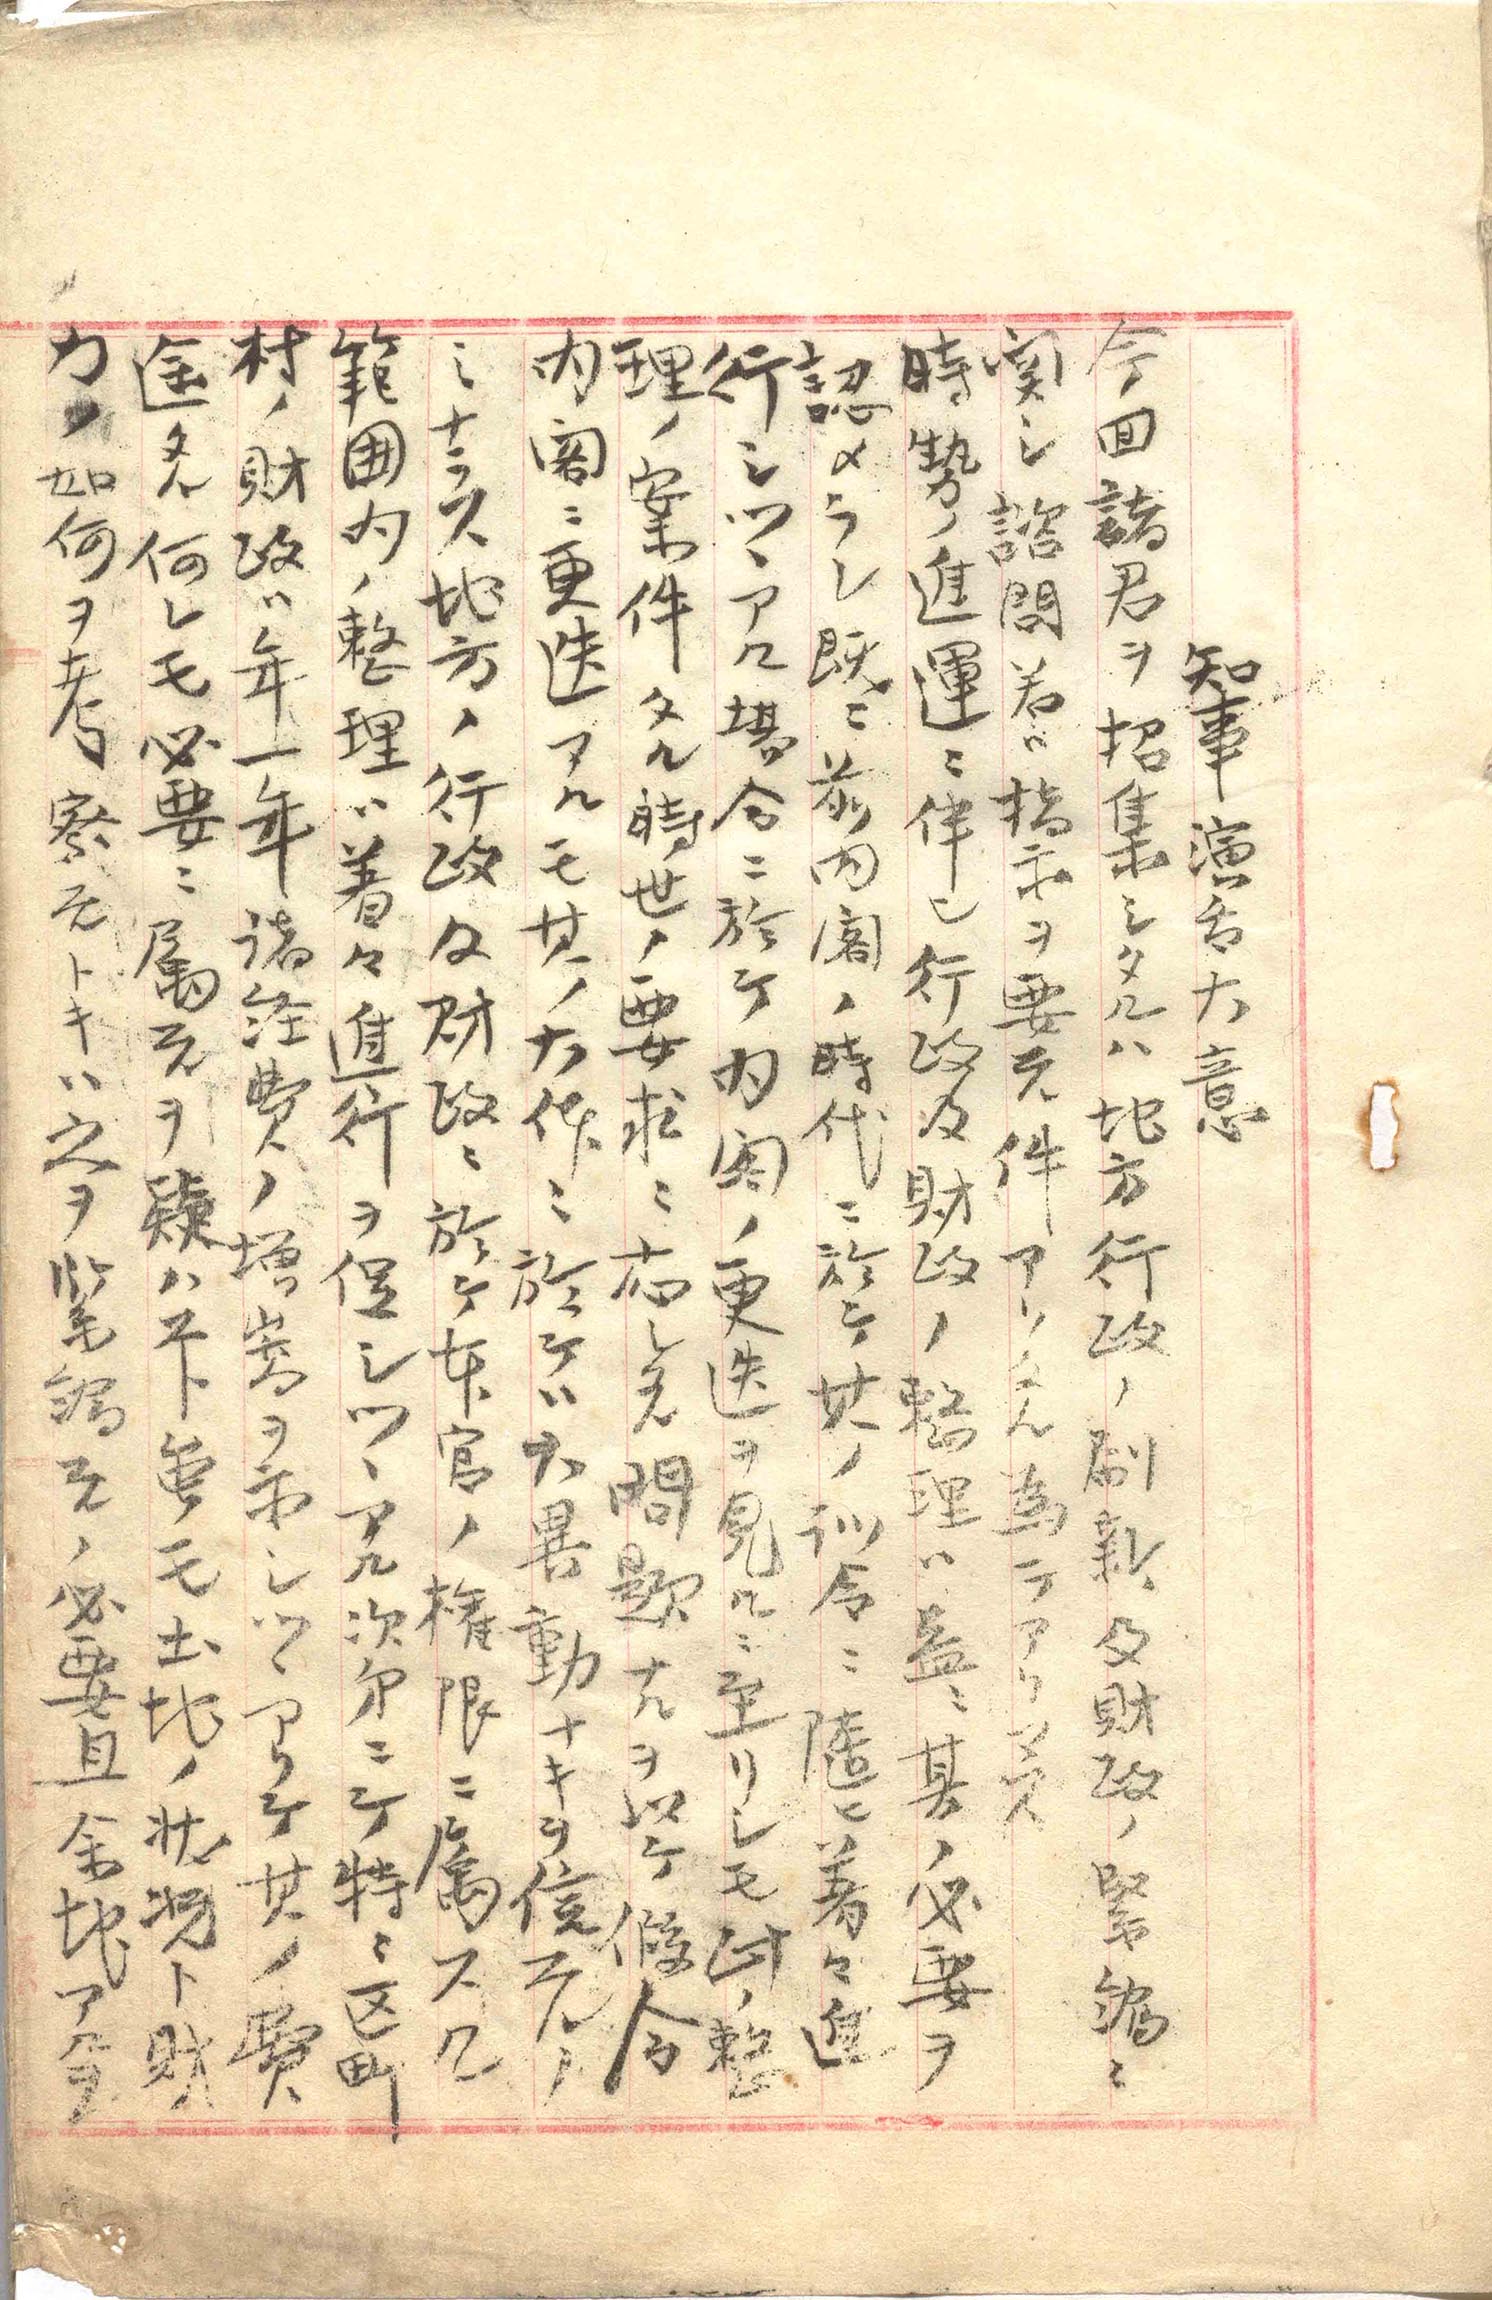 知事演舌大意
今回諸君ヲ招集シタルハ地方行政ノ刷新及財政ノ緊縮ニ
関シ諮問若ハ指示ヲ要スル件アリタル為テアリマス
時勢ノ進運ニ伴ヒ行政及財政ノ整理ハ益ニ其ノ必要ヲ
認メラレ既ニ前内閣ノ時代ニ於テ其ノ訓令ニ随ヒ着々進
行シツヽアル場合ニ於テ内閣ノ更迭ヲ見ルニ至リシモ此ノ整
理ノ案件タル時世ノ要求ニ応シタル問題ナルヲ以テ仮令
内閣ニ更迭アルモ其ノ大体ニ於テハ大異動ナキヲ信スルノ
ミナラス地方ノ行政及財政ニ於テ本官ノ権限ニ属スル
範囲内ノ整理ハ着々進行ヲ促シツヽアル次第ニテ特ニ区町
村ノ財政ハ年一年諸経費ノ増嵩ヲ示シツヽアリテ其ノ費
途タル何レモ必要ニ属スルヲ疑ハスト雖モ土地ノ状況ト財
力ノ如何ヲ考察スルトキハ之ヲ緊縮スルノ必要且余地アルヲ